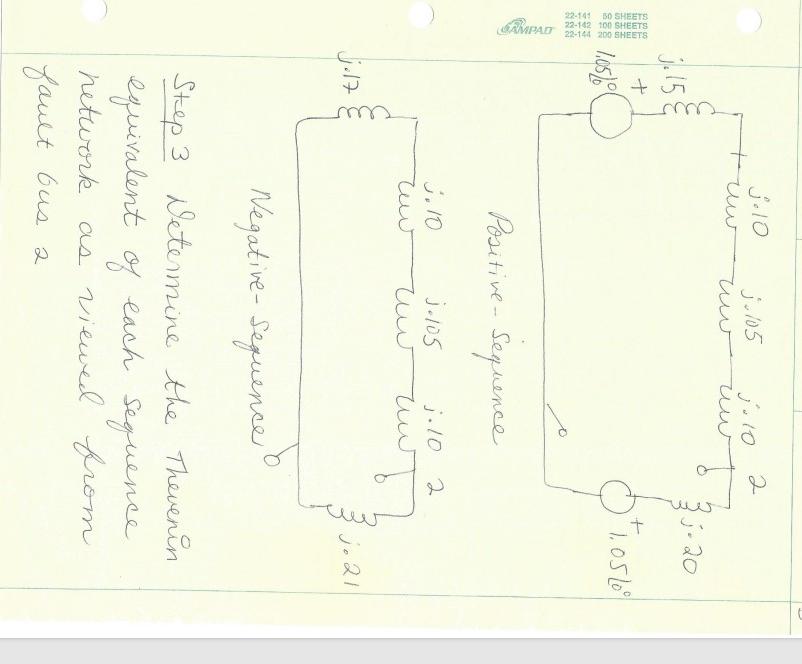 AMPAD
22-141 50 SHEETS
22-142 100 SHEETS
22-144 200 SHEETS
j.10 j.105 j.10 2
j.15
+
1.05∠0°
j.20
+
1.05∠0°
Positive-Sequence
j.10 j.105 j.10 2
j.17
j.21
Negative-Sequence
Step 3 Determine the Thevenin
equivalent of each sequence
network as viewed from
fault bus 2